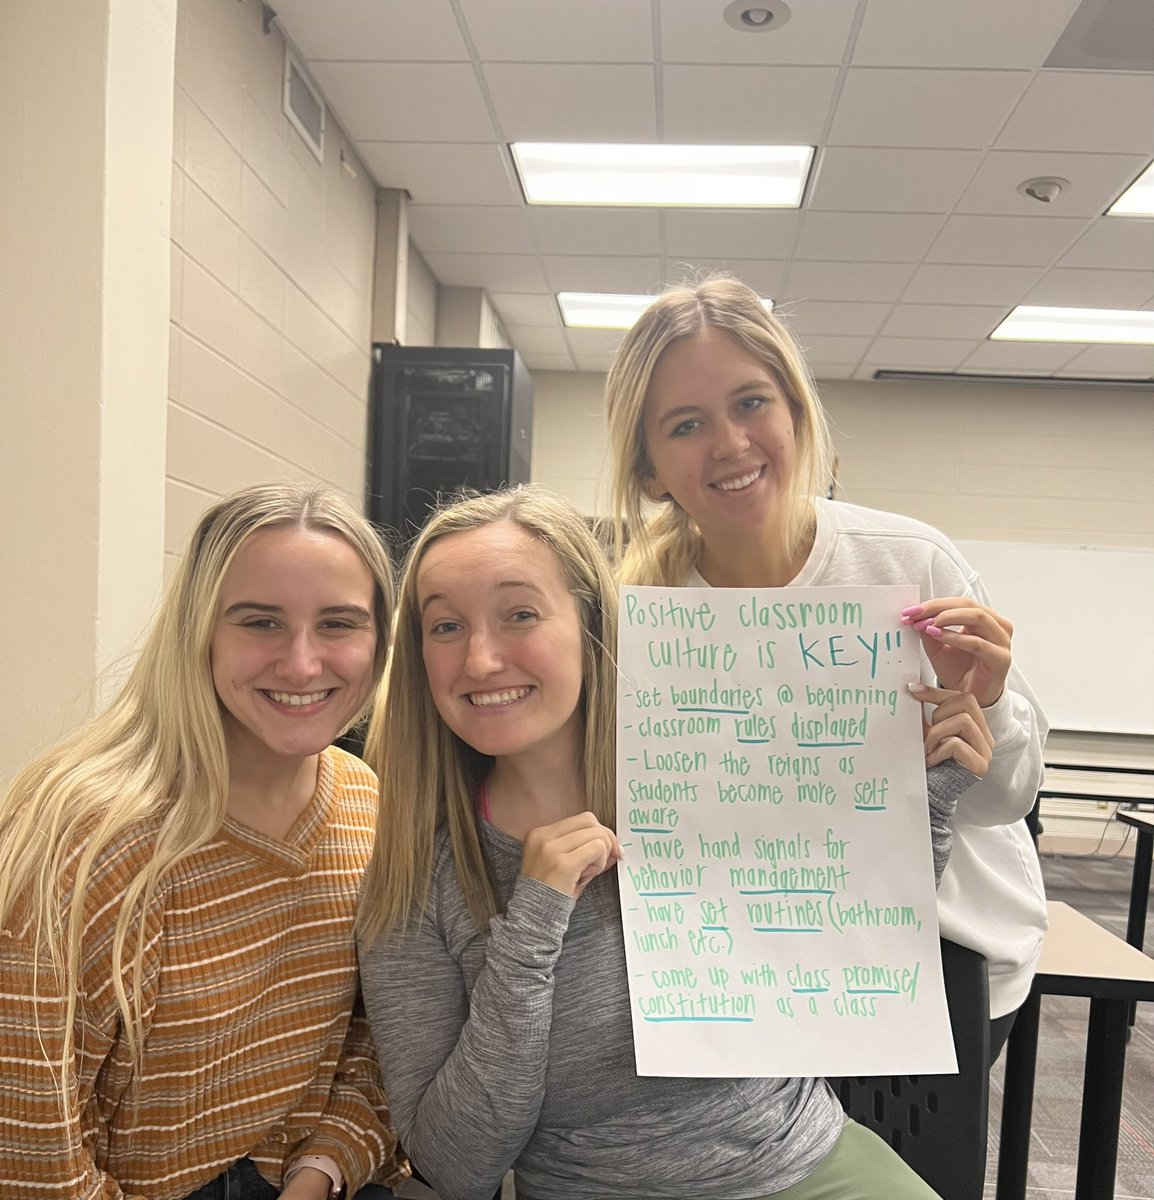 Positive classroom
culture is KEY!!
- set boundaries @ beginning
- classroom rules displayed
- Loosen the reigns as
students become more self
aware
- have hand signals for
behavior mandgement
- have set routines (bathroom,
lunch etc.)
- come up with class promise/
constitution as a class